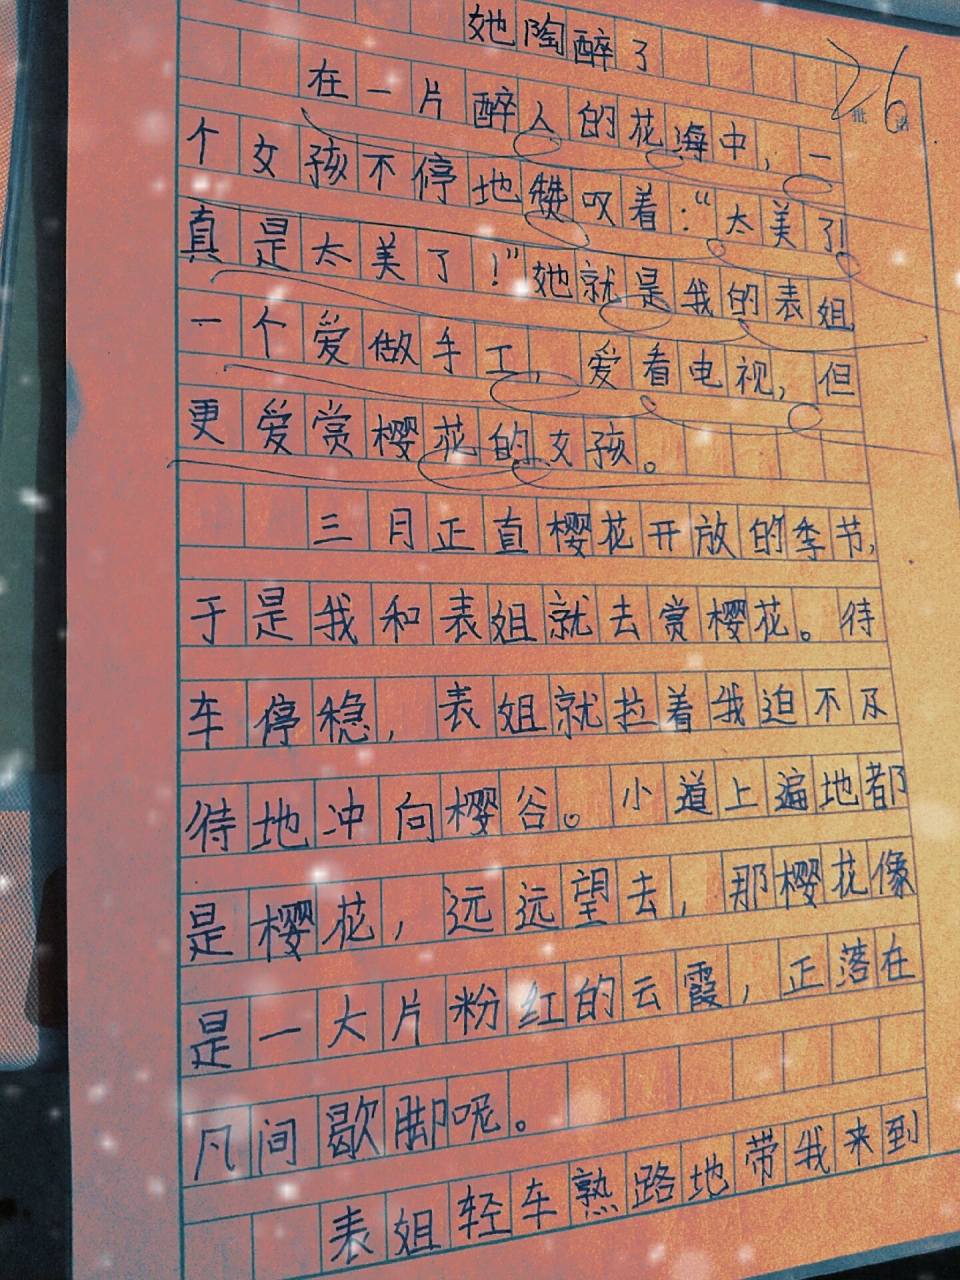 她陶醉了
26
在一片醉人的花海中，一
个女孩不停地赞叹着：“太美了！
真是太美了！”她就是我的表姐
一个爱做手工，爱看电视，但
更爱赏樱花的女孩。
三月正直樱花开放的季节，
于是我和表姐就去赏樱花。待
车停稳，表姐就拉着我迫不及
待地冲向樱谷。小道上遍地都
是樱花，远远望去，那樱花像
是一大片粉红的云霞，正落在
凡间歇脚呢。
表姐轻车熟路地带我来到